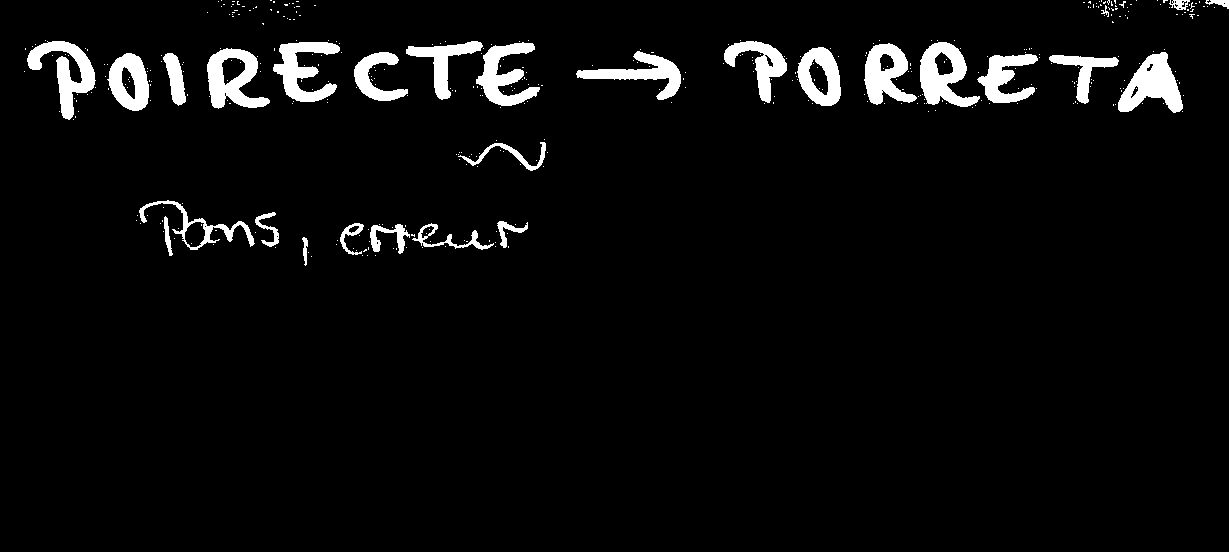 POIRECTE → PORRETA
Pons, erreur